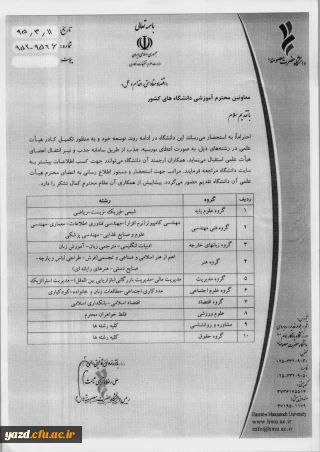 باسمه تعالی
تاریخ: ۹۵/۳/۱۱
شماره: ۹۵۲-۹۵۲۶
جمهوری اسلامی ایران
وزارت علوم تحقیقات و فناوری
دانشگاه حضرت معصومه(س)
معاونین محترم آموزشی دانشگاه های کشور
باتقدیم سلام
احتراماً، به استحضار می‌رساند این دانشگاه در ادامه روند توسعه خود و به منظور تکمیل کادر هیأت
علمی در رشته‌های ذیل، به صورت انتقالی، بورسیه، جذب از طریق سامانه جذب و نیز انتقال اعضای
علمی استقبال می‌نماید. همکاران ارجمند آن دانشگاه می‌توانند جهت کسب اطلاعات بیشتر به
سایت دانشگاه مراجعه فرمایند. مراتب جهت استحضار و دستور اطلاع رسانی به اعضای محترم هیأت
علمی آن دانشگاه تقدیم حضور می‌گردد. پیشاپیش از همکاری آن مقام محترم کمال تشکر را دارد.
ردیف گروه رشته
۱ گروه علوم پایه شیمی-فیزیک-زیست-ریاضی
۲ گروه فنی مهندسی مهندسی کامپیوتر(نرم افزار)-مهندسی فناوری اطلاعات-معماری-مهندسی
علوم و صنایع غذایی-مهندسی پزشکی
۳ گروه زبانهای خارجه ادبیات انگلیسی-مترجمی زبان-آموزش زبان
۴ گروه هنر اعم از هنر اسلامی و صناعی و تجسمی(فرش-طراحی لباس و پارچه-
صنایع دستی-هنرهای رایانه ای)
۵ گروه مدیریت مدیریت مالی-مدیریت بازرگانی(بازاریابی بین الملل)-مدیریت استراتژیک
۶ گروه علوم اجتماعی مددکاری اجتماعی-مطالعات زنان و خانواده-کودکیاری
۷ گروه اقتصاد اقتصاد اسلامی-بانکداری اسلامی
۸ علوم ورزشی فقط خواهران محترم
۹ مشاوره و روانشناسی کلیه رشته ها
۱۰ گروه حقوق کلیه رشته ها
Hazrate Masoumeh University
hmu.ac.ir
info@hmu.ac.ir
yazd.cfu.ac.ir